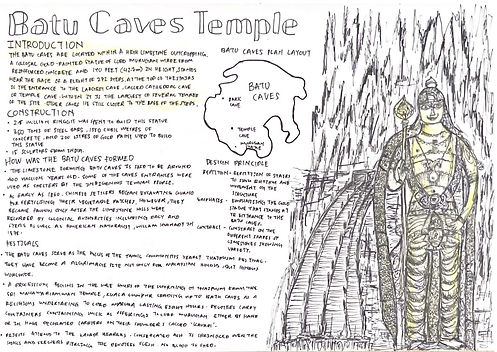 Batu Caves Temple
INTRODUCTION
THE BATU CAVES ARE LOCATED WITHIN A HIGH LIMESTONE OUTCROPPING.
A COLOSSAL GOLD-PAINTED STATUE OF LORD MURUGAN MADE FROM
REINFORCED CONCRETE AND 140 FEET (42.7m) IN HEIGHT, STANDS
NEAR THE BASE OF A FLIGHT OF 272 STEPS. AT THE TOP OF THE STAIRS
IS THE ENTRANCE TO THE LARGEST CAVE, CALLED CATHEDRAL CAVE
OR TEMPLE CAVE. WITHIN IT IS THE LARGEST OF SEVERAL TEMPLES
OF THE SITE. OTHER CAVES LIE STILL CLOSER TO THE BASE OF THE STEPS.
CONSTRUCTION
• MILLION RINGGIT WAS SPENT TO BUILD THIS STATUE
• TONS OF STEEL BARS, 1550 CUBIC METRES OF
CONCRETE AND 300 LITRES OF GOLD PAINT USED TO BUILD
THIS STATUE
• 15 SCULPTORS FROM INDIA
HOW WAS THE BATU CAVES FORMED
• THE LIMESTONE FORMING BATU CAVES IS SAID TO BE AROUND
400 MILLION YEARS OLD. SOME OF THE CAVES ENTRANCES WERE
USED AS SHELTERS BY THE INDIGENOUS TEMUAN PEOPLE.
• AS EARLY AS 1860, CHINESE SETTLERS BEGAN EXCAVATING GUANO
FOR FERTILISING THEIR VEGETABLE PATCHES. HOWEVER, THEY
BECAME FAMOUS ONLY AFTER THE LIMESTONE HILLS WERE
RECORDED BY COLONIAL AUTHORITIES INCLUDING DALY AND
SYERS AS WELL AS AMERICAN NATURALIST, WILLIAM HORNADAY IN
1878.
FESTIVALS
• THE BATU CAVES SERVE AS THE FOCUS OF THE TAMIL COMMUNITY'S YEARLY THAIPUSAM FESTIVAL.
THEY HAVE BECOME A PILGRIMAGE SITE NOT ONLY FOR MALAYSIAN HINDUS, BUT HINDUS
WORLDWIDE.
• A PROCESSION BEGINS IN THE WEE HOURS OF THE MORNING OF THAIPUSAM FROM THE
SRI MAHAMARIAMMAN TEMPLE, KUALA LUMPUR LEADING UP TO BATU CAVES AS A
RELIGIOUS UNDERTAKING TO LORD MURUGA LASTING EIGHT HOURS. DEVOTEES CARRY
CONTAINERS CONTAINING MILK AS OFFERINGS TO LORD MURUGAN EITHER BY HAND
OR IN HUGE DECORATED CARRIERS ON THEIR SHOULDERS CALLED "KAVADI".
• PRIESTS ATTEND TO THE KAVADI BEARERS. CONSECRATED ASH IS SPRINKLED OVER THE
BATU CAVES PLAN LAYOUT
BATU
CAVES
DARK
CAVE
TEMPLE
CAVE
MURUGAN
STATUE
DESIGN PRINCIPLE
REPETITION - REPETITION OF STAIRS
TO SHOW RHYTHM AND
MOVEMENT ON THE
STRUCTURE
EMPHASIS - EMPHASISING THE GOLD
STATUE THAT STANDS AT
THE ENTRANCE TO THE
BATU CAVES.
CONTRAST - CONTRAST ON
THE DIFFERENT SHAPES OF
LIMESTONES SHOWING
VARIETY.